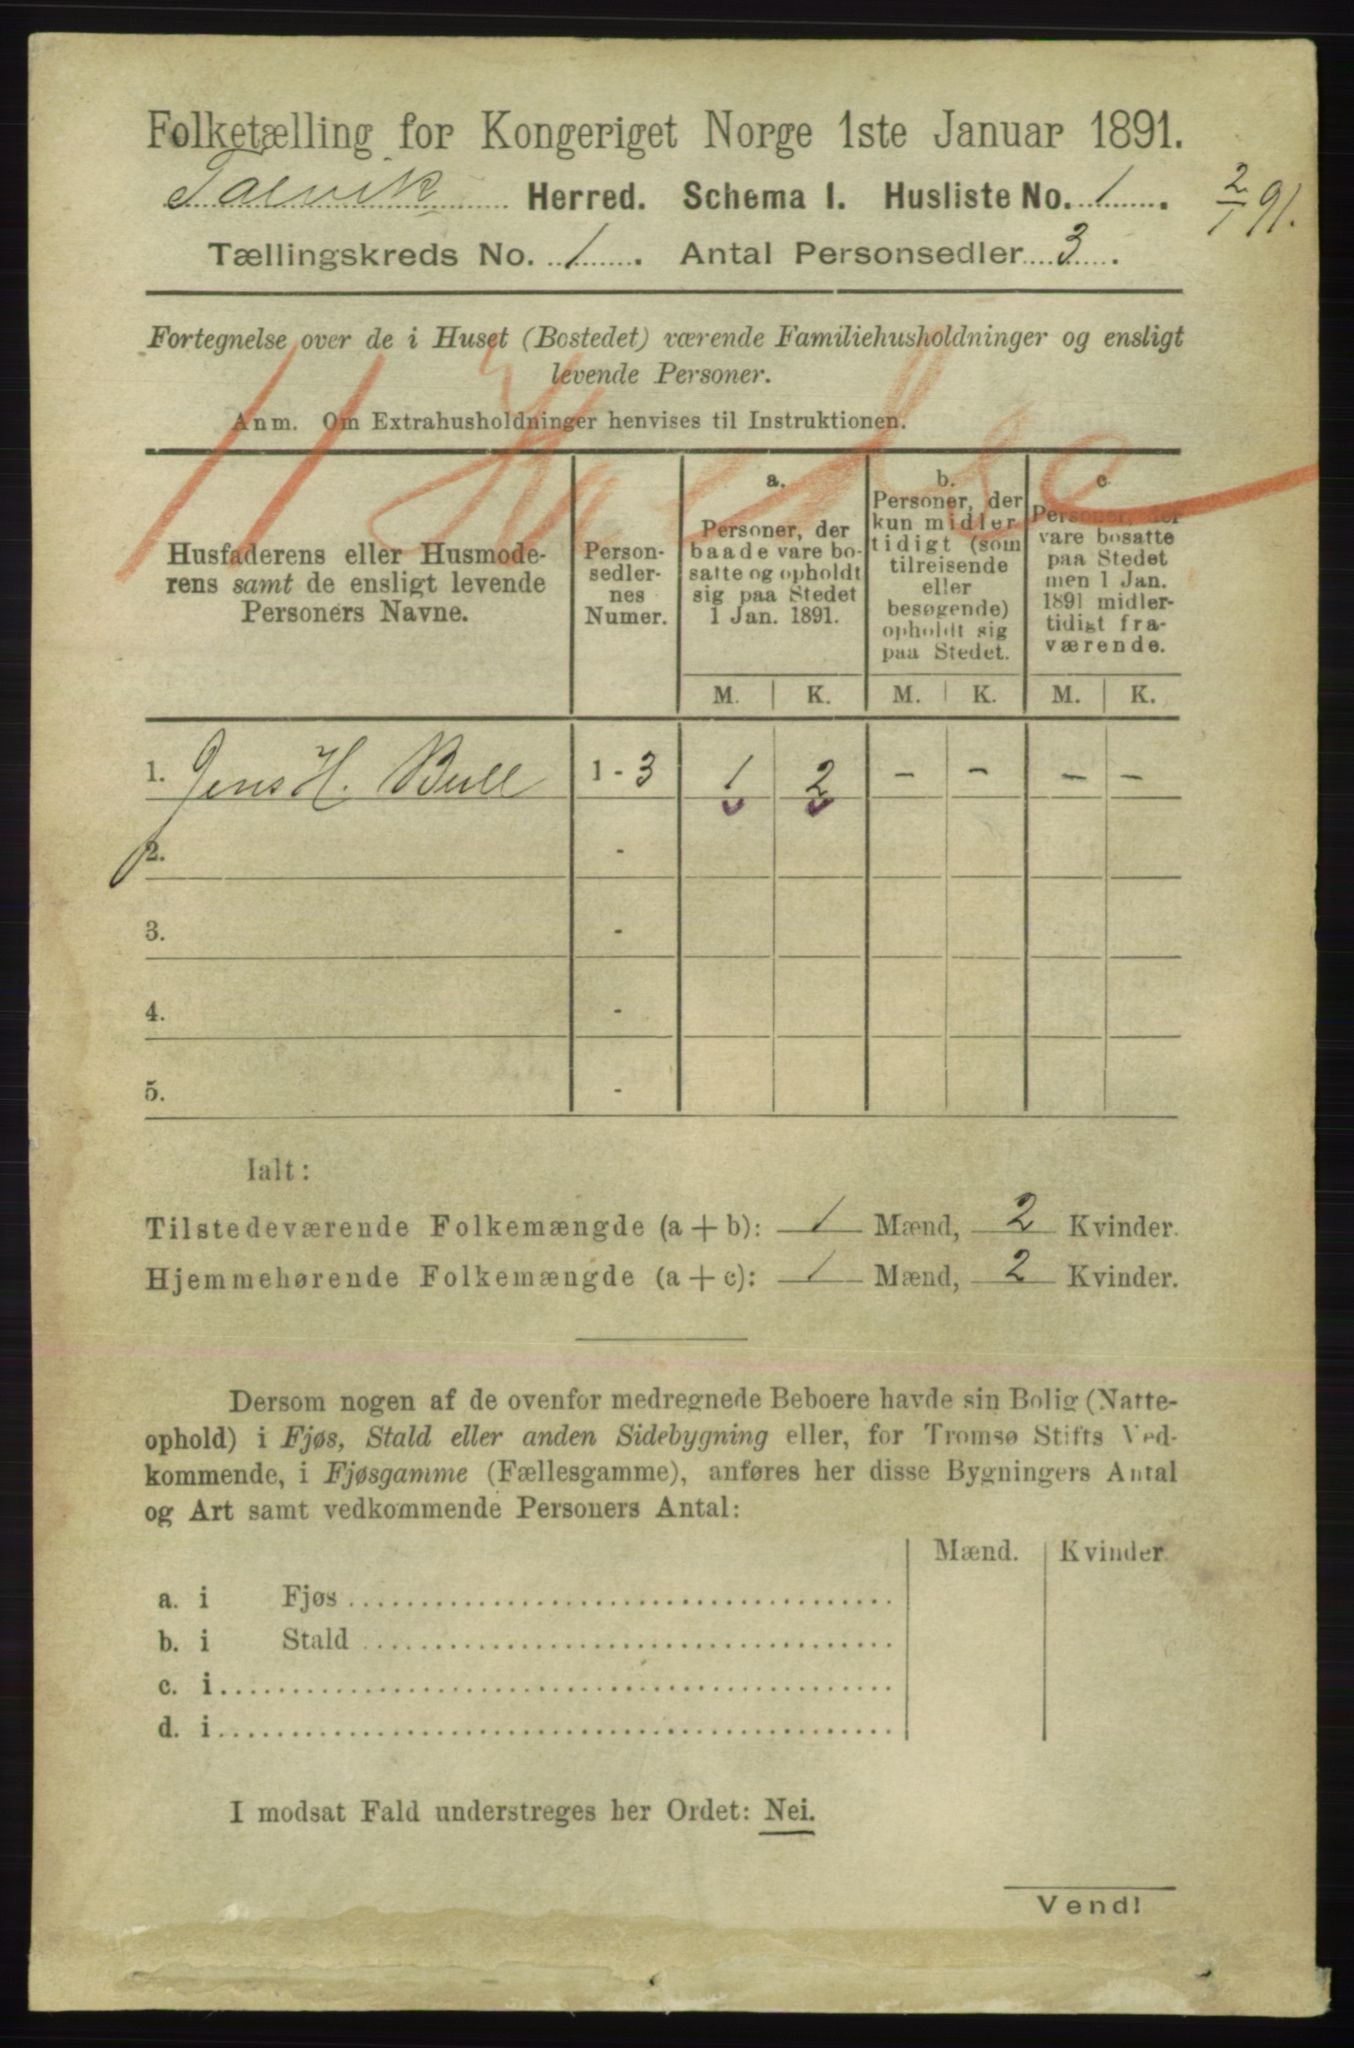 Folketælling for Kongeriget Norge 1ste Januar 1891.
Talvik Herred. Schema I. Husliste No. 1.
2/1 91.
Tællingskreds No. 1. Antal Personsedler 3.
Fortegnelse over de i Huset (Bostedet) værende Familiehusholdninger og ensligt
levende Personer.
Anm. Om Extrahusholdninger henvises til Instruktionen.
Husfaderens eller Husmode-
rens samt de ensligt levende
Personers Navne.
Person-
sedler-
nes
Numer.
a.
Personer, der
baade vare bo-
satte og opholdt
sig paa Stedet
1 Jan. 1891.
b.
Personer, der
kun midler-
tidigt (som
tilreisende
eller
besøgende)
opholdt sig
paa Stedet.
c.
Personer, der
vare bosatte
paa Stedet
men 1 Jan.
1891 midler-
tidigt fra-
værende.
M. K. M. K. M. K.
1. Jens H. Bull 1 - 3 1 2 - - - -
2. -
3. -
4. -
5. -
Ialt:
Tilstedeværende Folkemængde (a + b): 1 Mænd, 2 Kvinder.
Hjemmehørende Folkemængde (a + c): 1 Mænd, 2 Kvinder.
Dersom nogen af de ovenfor medregnede Beboere havde sin Bolig (Natte-
ophold) i Fjøs, Stald eller anden Sidebygning eller, for Tromsø Stifts Ved-
kommende, i Fjøsgamme (Fællesgamme), anføres her disse Bygningers Antal
og Art samt vedkommende Personers Antal:
Mænd. Kvinder.
a. i Fjøs
b. i Stald
c. i
d. i
I modsat Fald understreges her Ordet: Nei.
Vend!